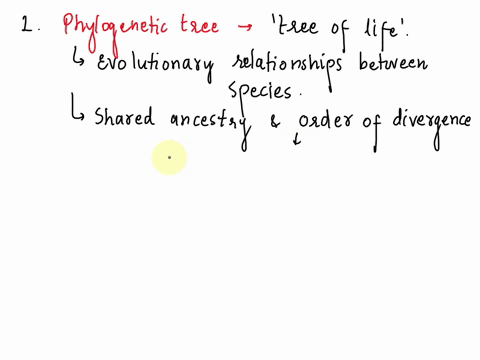 1. Phylogenetic tree → 'tree of life'.
↳ Evolutionary relationships between
species.
↳ Shared ancestry & order of divergence
↓